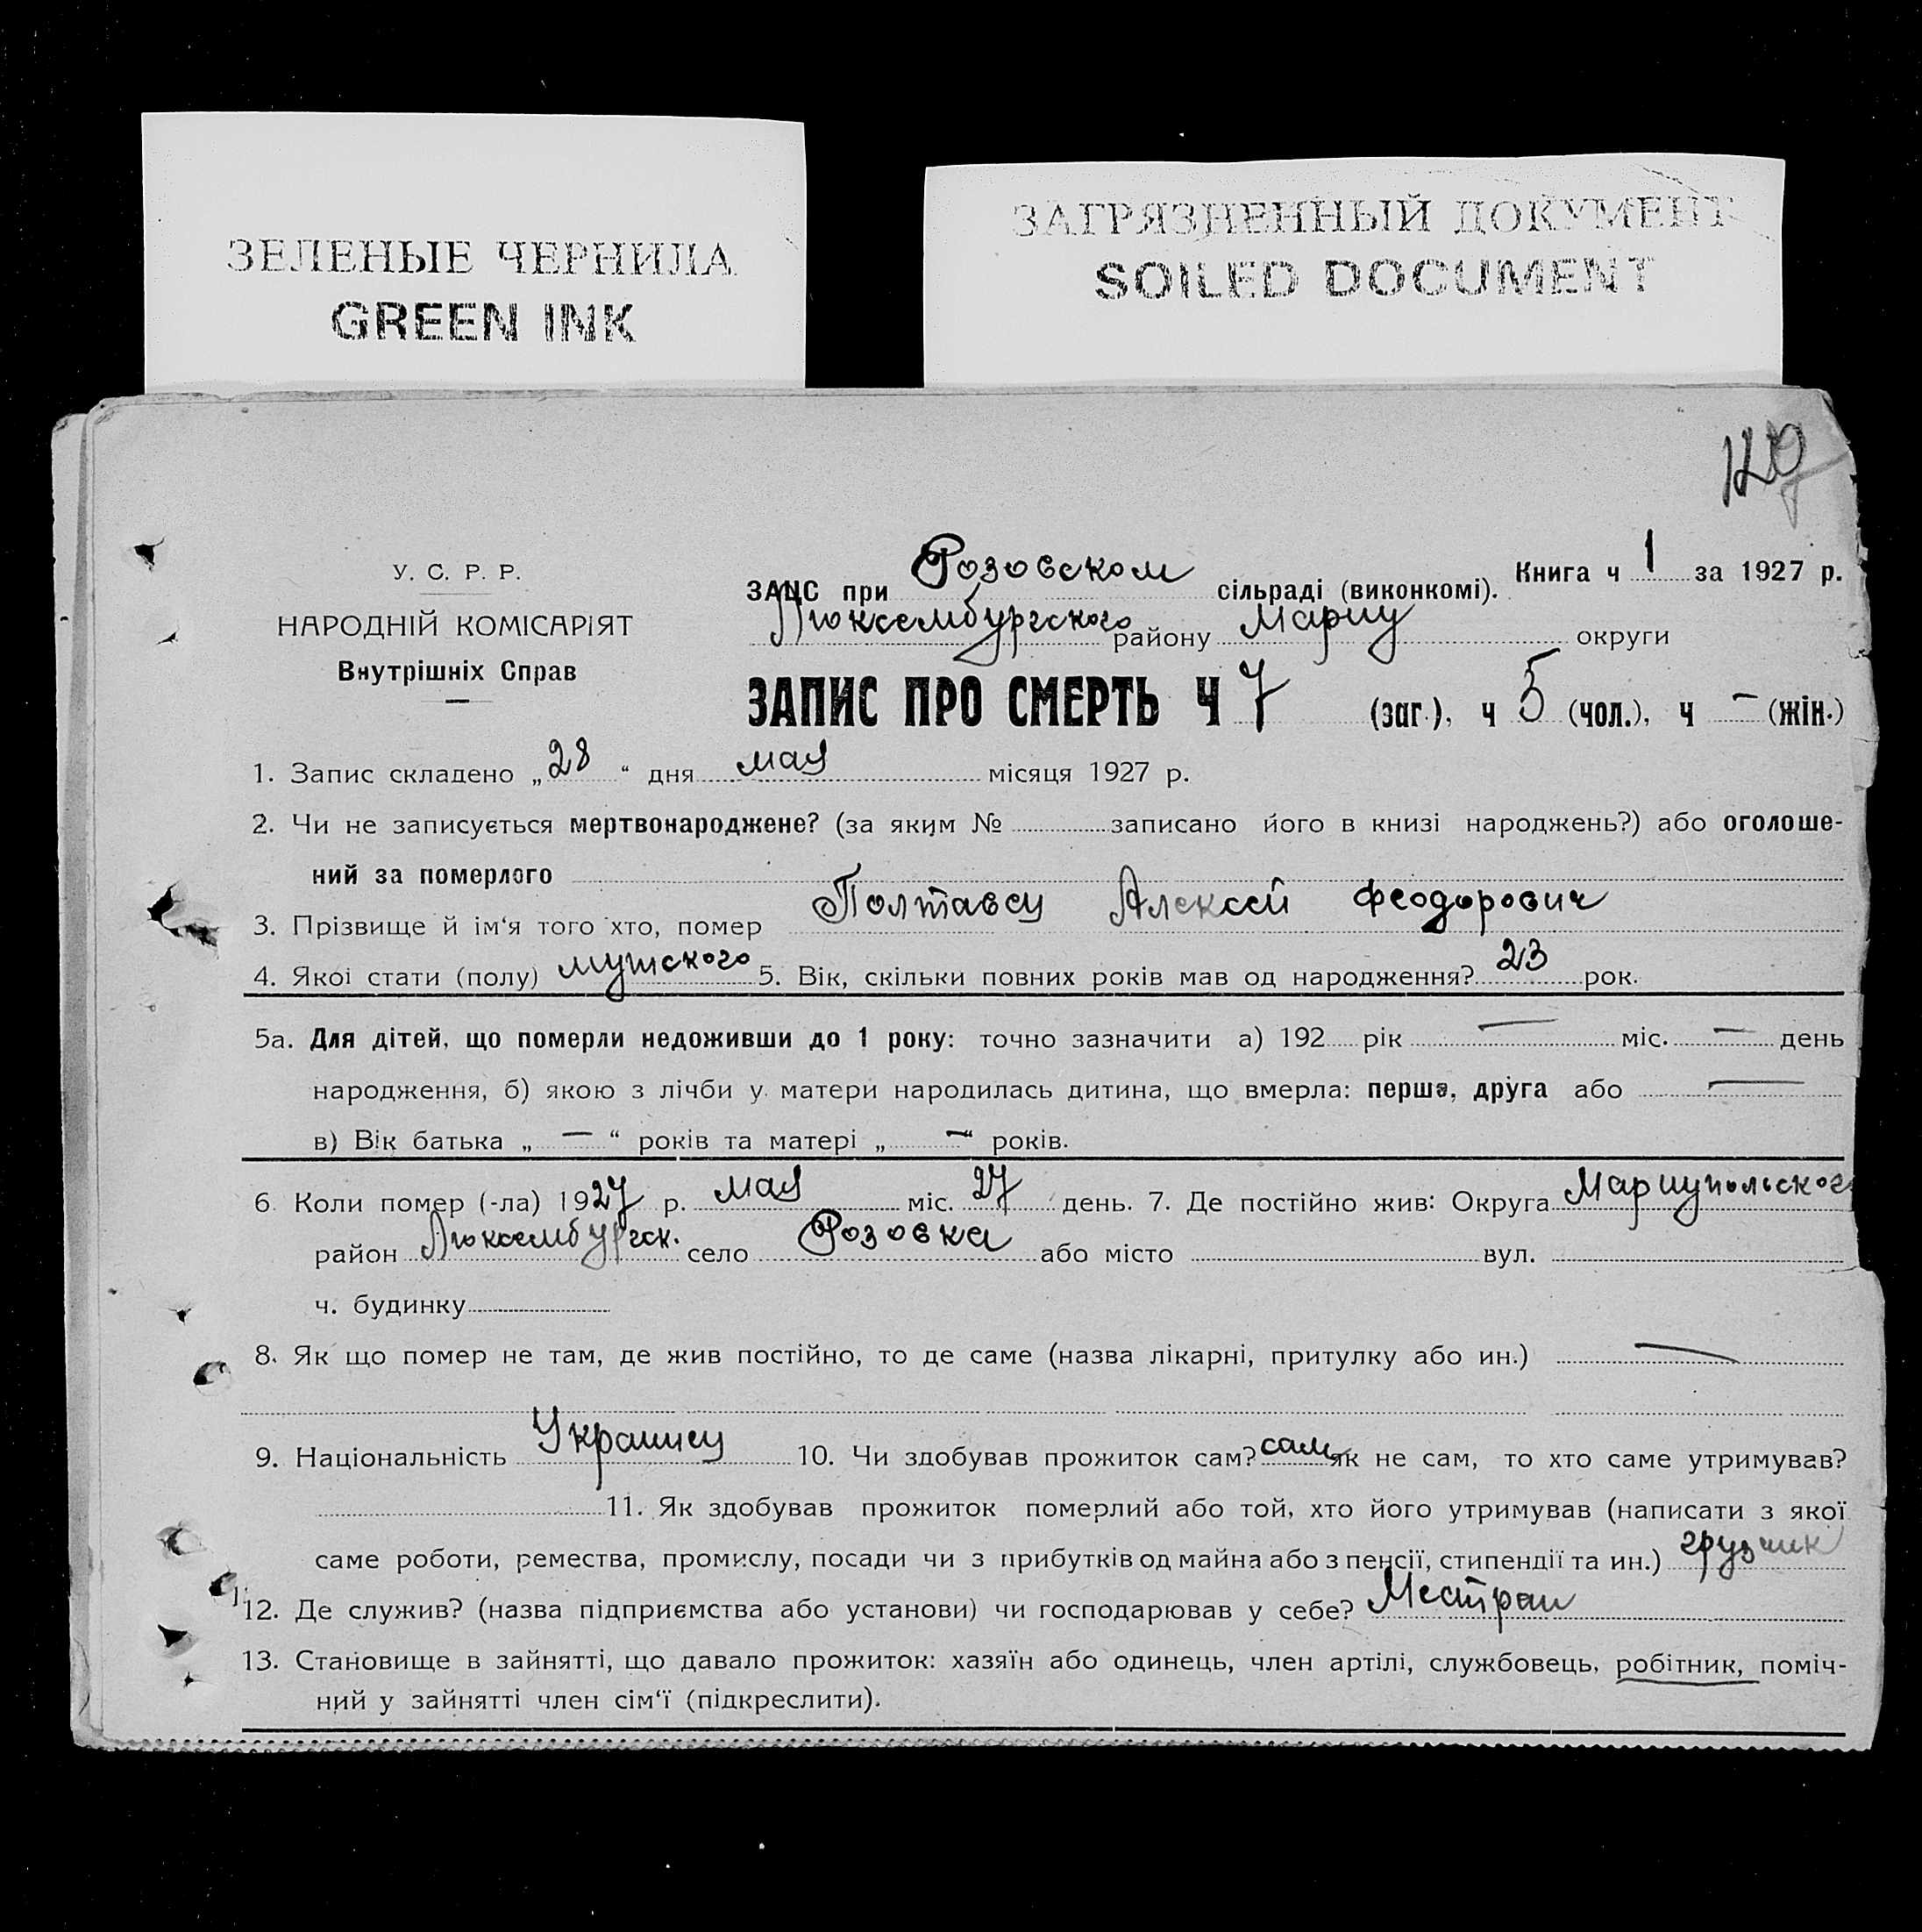 ЗЕЛЕНЫЕ ЧЕРНИЛА
GREEN INK
ЗАГРЯЗНЕННЫЙ ДОКУМЕНТ
SOILED DOCUMENT
У. С. Р. Р.
НАРОДНІЙ КОМІСАРІЯТ
Внутрішніх Справ
ЗАЦС при Розовском сільраді (виконкомі). Книга ч 1 за 1927 р.
Люксембургского району Мариу округи
ЗАПИС ПРО СМЕРТЬ Ч 7 (заг.), ч 5 (чол.), ч — (жін.)
1. Запис складено „28“ дня мая місяця 1927 р.
2. Чи не записується мертвонароджене? (за яким № записано його в книзі народжень?) або оголоше-
ний за померлого
3. Прізвище й ім‘я того хто, помер Полтавец Алексей Феодорович
4. Якої стати (полу) мужского 5. Вік, скільки повних років мав од народження? 23 рок.
5а. Для дітей, що померли недоживши до 1 року: точно зазначити а) 192 рік — міс. — день
народження, б) якою з лічби у матери народилась дитина, що вмерла: перша, друга або —
в) Вік батька „—“ років та матері „—“ років.
6 Коли помер (-ла) 1927 р. мая міс. 27 день. 7. Де постійно жив: Округа Мариупольского
район Люксембургск. село Розовка або місто вул.
ч. будинку
8. Як що помер не там, де жив постійно, то де саме (назва лікарні, притулку або ин.) —
9. Національність Украинец 10. Чи здобував прожиток сам? сам як не сам, то хто саме утримував?
11. Як здобував прожиток померлий або той, хто його утримував (написати з якої
саме роботи, ремества, промислу, посади чи з прибутків од майна або з пенсії, стипендії та ин.) грузчик
12. Де служив? (назва підприємства або установи) чи господарював у себе? Местран
13. Становище в зайнятті, що давало прожиток: хазяїн або одинець, член артілі, службовець, робітник, поміч-
ний у зайнятті член сім‘ї (підкреслити).